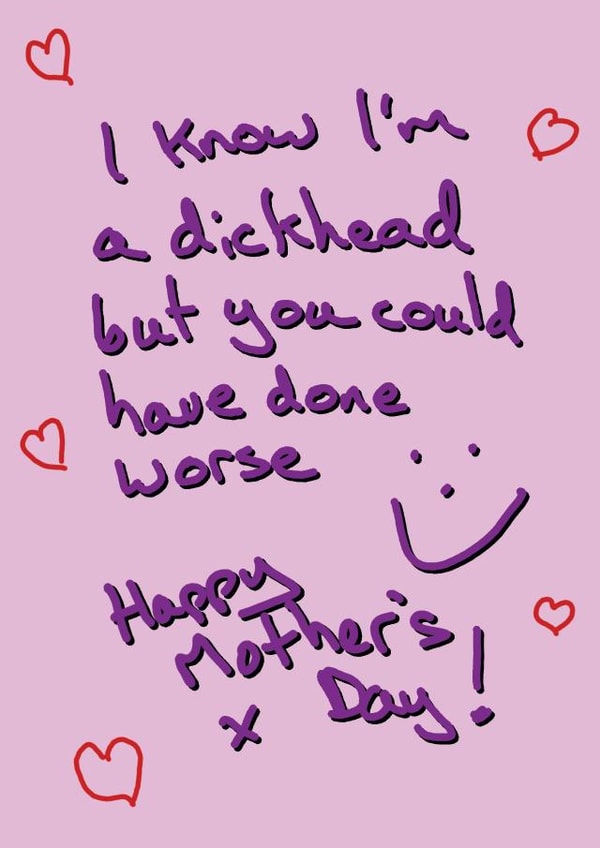 I Know I'm
a dickhead
but you could
have done
worse
Happy
Mother's
x Day!